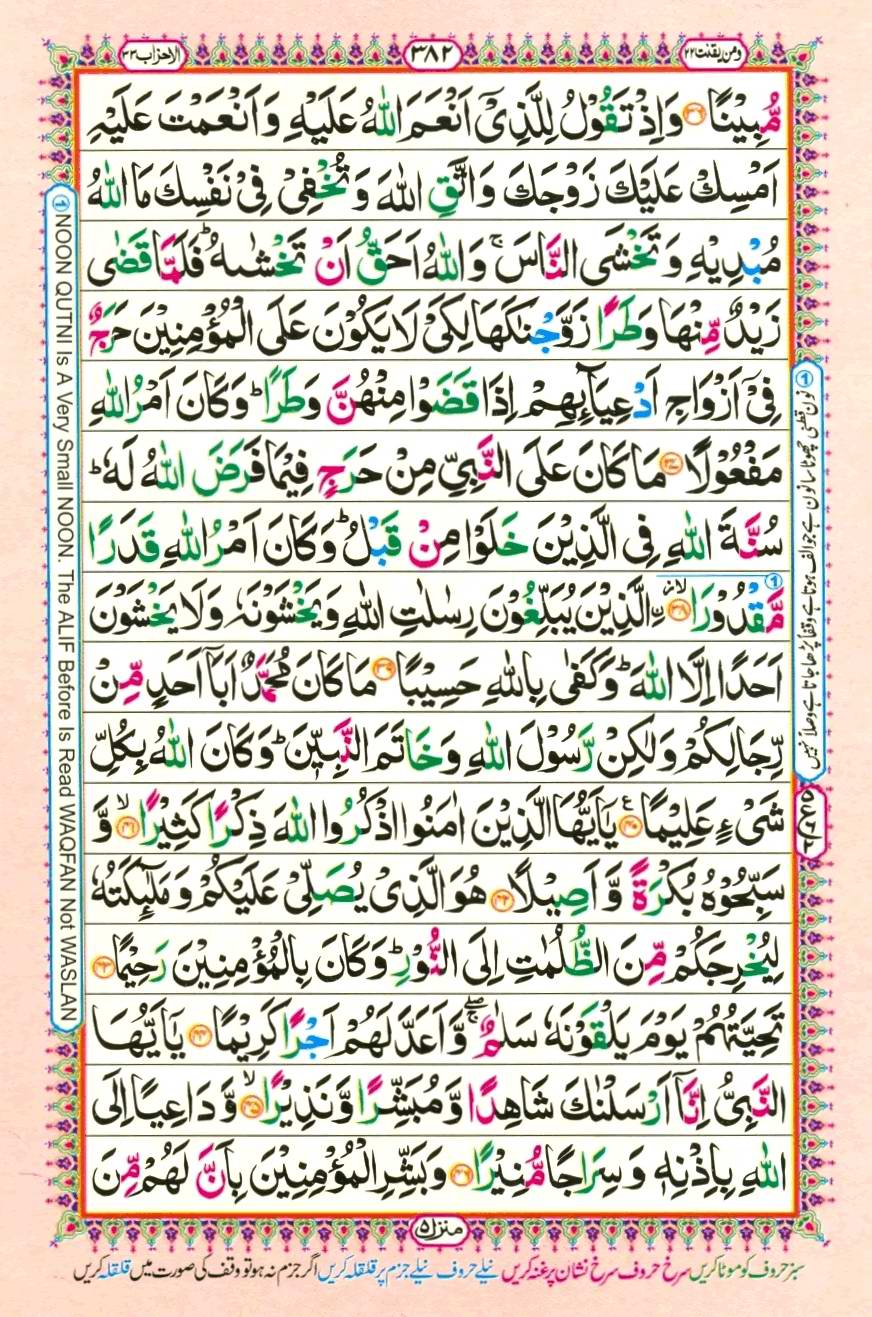 ومن یقنت ۲۲
۳۸۲
الاحزاب ۳۳
مُّبِیْنًا ﴿۳۶﴾ وَاِذْ تَقُوْلُ لِلَّذِیْۤ اَنْعَمَ اللّٰهُ عَلَیْهِ وَاَنْعَمْتَ عَلَیْهِ
اَمْسِكْ عَلَیْكَ زَوْجَكَ وَاتَّقِ اللّٰهَ وَتُخْفِیْ فِیْ نَفْسِكَ مَا اللّٰهُ
مُبْدِیْهِ وَتَخْشَی النَّاسَ ۚ وَاللّٰهُ اَحَقُّ اَنْ تَخْشٰىهُ ؕ فَلَمَّا قَضٰی
زَیْدٌ مِّنْهَا وَطَرًا زَوَّجْنٰكَهَا لِكَیْ لَا یَكُوْنَ عَلَی الْمُؤْمِنِیْنَ حَرَجٌ
فِیْۤ اَزْوَاجِ اَدْعِیَآىِٕهِمْ اِذَا قَضَوْا مِنْهُنَّ وَطَرًا ؕ وَكَانَ اَمْرُ اللّٰهِ
مَفْعُوْلًا ﴿۳۷﴾ مَا كَانَ عَلَی النَّبِیِّ مِنْ حَرَجٍ فِیْمَا فَرَضَ اللّٰهُ لَهٗ ؕ
سُنَّةَ اللّٰهِ فِی الَّذِیْنَ خَلَوْا مِنْ قَبْلُ ؕ وَكَانَ اَمْرُ اللّٰهِ قَدَرًا
مَّقْدُوْرَا ﴿۳۸﴾ ۙ ِ۟الَّذِیْنَ یُبَلِّغُوْنَ رِسٰلٰتِ اللّٰهِ وَیَخْشَوْنَهٗ وَلَا یَخْشَوْنَ
اَحَدًا اِلَّا اللّٰهَ ؕ وَكَفٰی بِاللّٰهِ حَسِیْبًا ﴿۳۹﴾ مَا كَانَ مُحَمَّدٌ اَبَاۤ اَحَدٍ مِّنْ
رِّجَالِكُمْ وَلٰكِنْ رَّسُوْلَ اللّٰهِ وَخَاتَمَ النَّبِیّٖنَ ؕ وَكَانَ اللّٰهُ بِكُلِّ
شَیْءٍ عَلِیْمًا ﴿۴۰﴾ ۧ یٰۤاَیُّهَا الَّذِیْنَ اٰمَنُوا اذْكُرُوا اللّٰهَ ذِكْرًا كَثِیْرًا ﴿۴۱﴾ ۙ وَّ
سَبِّحُوْهُ بُكْرَةً وَّاَصِیْلًا ﴿۴۲﴾ هُوَ الَّذِیْ یُصَلِّیْ عَلَیْكُمْ وَمَلٰٓىِٕكَتُهٗ
لِیُخْرِجَكُمْ مِّنَ الظُّلُمٰتِ اِلَی النُّوْرِ ؕ وَكَانَ بِالْمُؤْمِنِیْنَ رَحِیْمًا ﴿۴۳﴾
تَحِیَّتُهُمْ یَوْمَ یَلْقَوْنَهٗ سَلٰمٌ ۖۚ وَاَعَدَّ لَهُمْ اَجْرًا كَرِیْمًا ﴿۴۴﴾ یٰۤاَیُّهَا
النَّبِیُّ اِنَّاۤ اَرْسَلْنٰكَ شَاهِدًا وَّمُبَشِّرًا وَّنَذِیْرًا ﴿۴۵﴾ ۙ وَّدَاعِیًا اِلَی
اللّٰهِ بِاِذْنِهٖ وَسِرَاجًا مُّنِیْرًا ﴿۴۶﴾ وَبَشِّرِ الْمُؤْمِنِیْنَ بِاَنَّ لَهُمْ مِّنَ
① نون قطنی چھوٹا سا نون ہے جو الف ہوتا ہے وقفا پڑھا جاتا ہے وصلا نہیں
① NOON QUTNI Is A Very Small NOON. The ALIF Before Is Read WAQFAN Not WASLAN
منزل ۵
سبز حروف کو موٹا کریں سرخ حروف سرخ نشان پر غنہ کریں نیلے حروف نیلے جزم پر قلقلہ کریں اگر جزم نہ ہو تو وقف کی صورت میں قلقلہ کریں